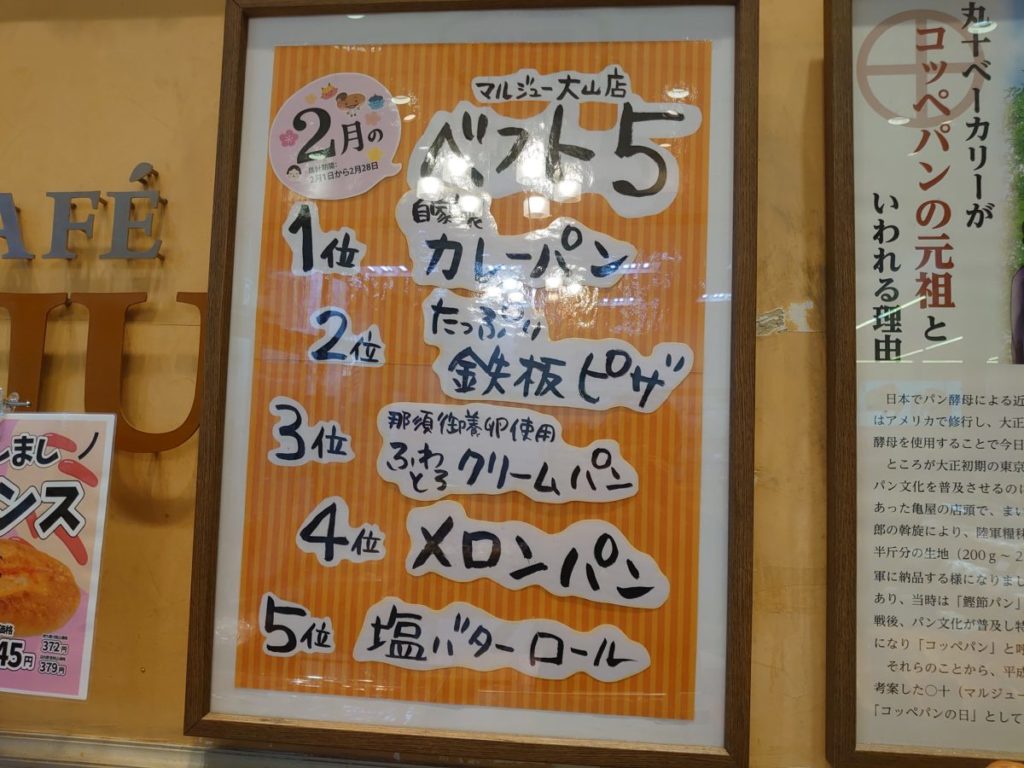 AFÉ
JU
マルジュー大山店
ベスト5
2月の
集計期間:
2月1日から2月28日
1位
自家製
カレーパン
2位
たっぷり
鉄板ピザ
3位
那須御養卵使用
ふわとろ
クリームパン
4位
メロンパン
5位
塩バターロール
しまし
ンス
価格
45円
372円
379円
丸十ベーカリーが
コッペパンの元祖と
いわれる理由
日本でパン酵母による近
はアメリカで修行し、大正
酵母を使用することで今日
ところが大正初期の東京
パン文化を普及させるのに
あった亀屋の店頭で、まい
郎の斡旋により、陸軍糧秣
半斤分の生地（200ｇ～2
軍に納品する様になりまし
あり、当時は「鰹節パン」
戦後、パン文化が普及し特
になり「コッペパン」と呼
それらのことから、平成
考案した〇十（マルジュー
「コッペパンの日」として